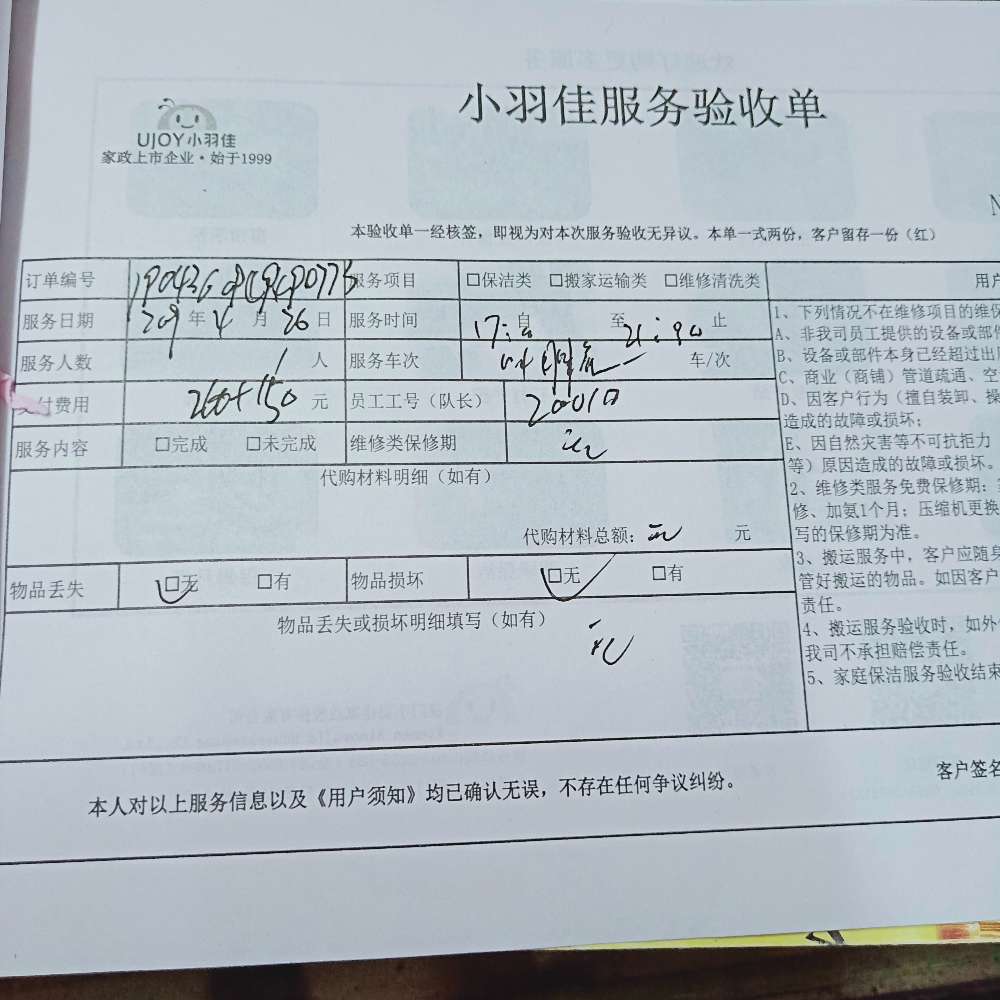 小羽佳服务验收单
UJOY小羽佳
家政上市企业·始于1999
N
本验收单一经核签，即视为对本次服务验收无异议。本单一式两份，客户留存一份（红）
订单编号 服务项目 □保洁类 □搬家运输类 □维修清洗类
服务日期 年 4 月 26 日 服务时间 自 至 止
服务人数 1 人 服务车次 车/次
支付费用 260+150 元 员工工号（队长）
服务内容 □完成 □未完成 维修类保修期
代购材料明细（如有）
代购材料总额： 元
物品丢失 □无 □有 物品损坏 □无 □有
物品丢失或损坏明细填写（如有）
本人对以上服务信息以及《用户须知》均已确认无误，不存在任何争议纠纷。
客户签名
用户
1、下列情况不在维修项目的维保
A、非我司员工提供的设备或部件
B、设备或部件本身已经超过出厂
C、商业（商铺）管道疏通、空
D、因客户行为（擅自装卸、操
造成的故障或损坏；
E、因自然灾害等不可抗拒力
等）原因造成的故障或损坏。
2、维修类服务免费保修期：
修、加氨1个月；压缩机更换
写的保修期为准。
3、搬运服务中，客户应随身
管好搬运的物品。如因客户
责任。
4、搬运服务验收时，如外
我司不承担赔偿责任。
5、家庭保洁服务验收结束